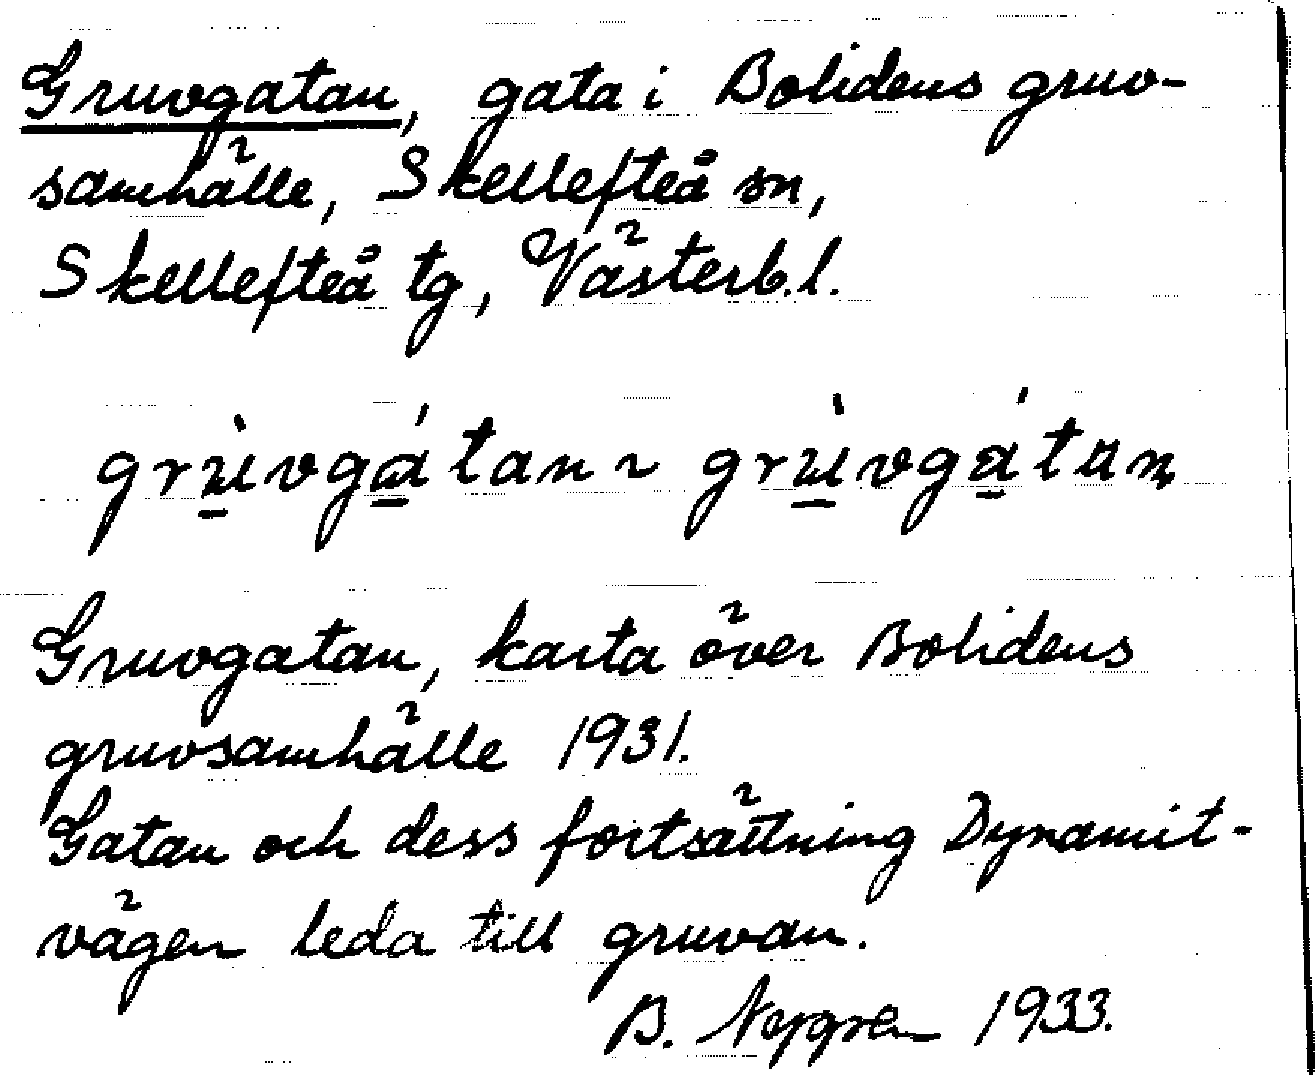 Gruvgatan, gata i Bolidens gruv-
samhälle, Skellefteå sn,
Skellefteå tg, Västerb.l.
grùvgá̱tan ~ grùvgá̱tan
Gruvgatan, karta över Bolidens
gruvsamhälle 1931.
Gatan och dess fortsättning Dynamit-
vägen leda till gruvan.
B. Nygren 1933.